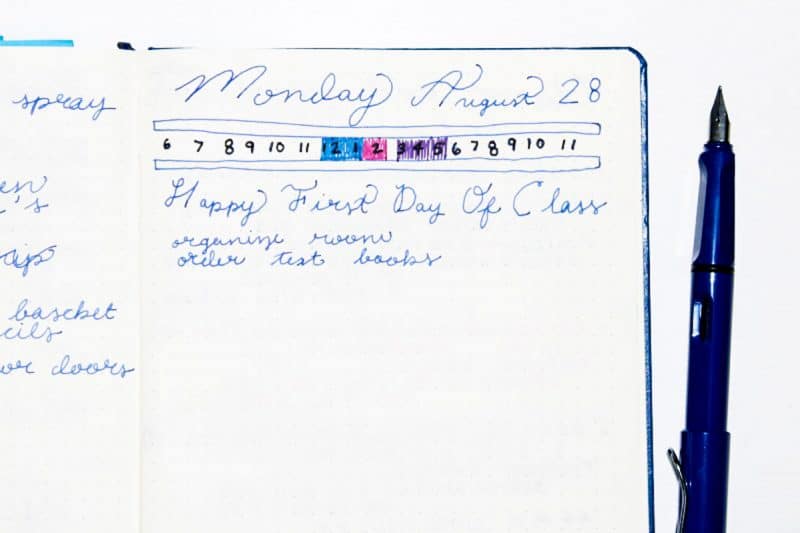 spray
baseket
or doors
Monday August 28
6 7 8 9 10 11 12 1 2 3 4 5 6 7 8 9 10 11
Happy First Day Of Class
organize room
order text books